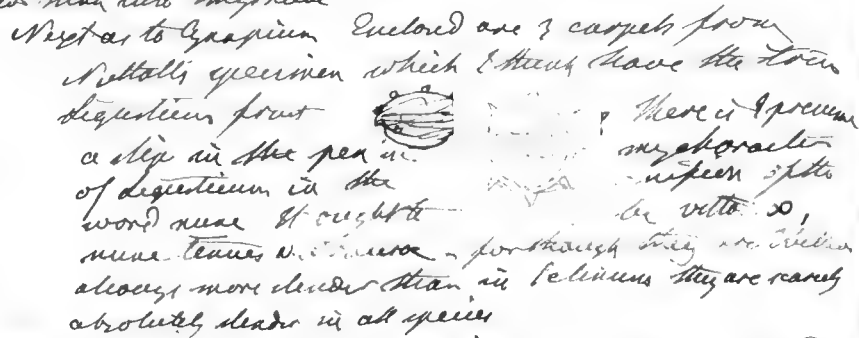 Next as to Enclosed are 3 carpels from
Nuttall's specimen which I think have the true
Ligusticum fruit There is I presume
a slip in the pen in my character
of Ligusticum in the
word nunc It ought to be vittæ ∞,
nunc tenues for though they are
always more slender than in Selinum they are scarcely
absolutely slender in all species